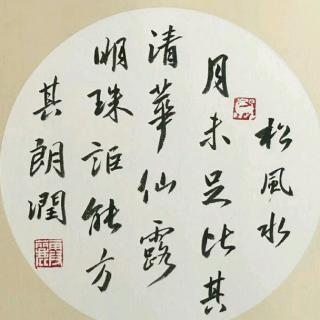 松風水
月未足比其
清華仙露
明珠詎能方
其朗潤